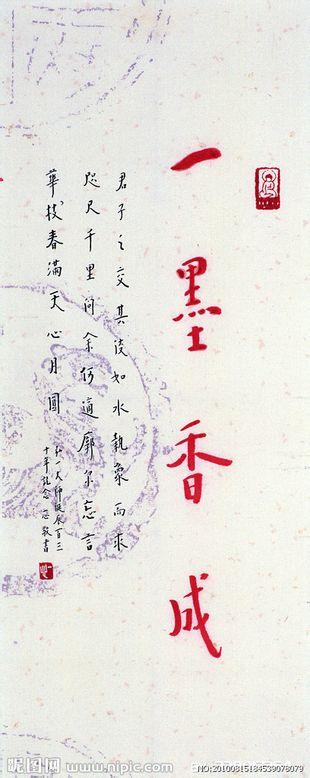 一墨香成
君子之交其淡如水執象而求
咫尺千里问余何適廓尔忘言
華枝春滿天心月圓
弘一大师诞辰百三
十年纪念 敬書
昵图网
www.nipic.com
NO:20100815184539078079